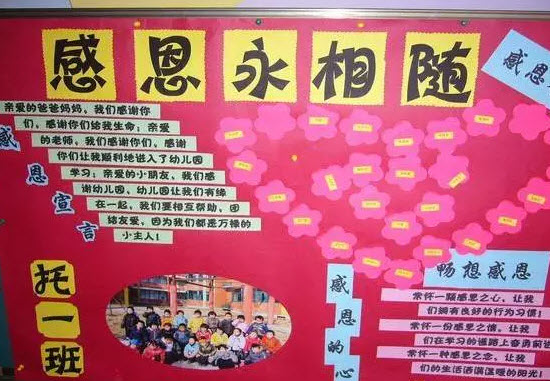 感恩永相随
感恩
感恩宣言
亲爱的爸爸妈妈,我们感谢你
们,感谢你们给我生命;亲爱
的老师,我们感谢你们,感谢
你们让我顺利地进入了幼儿园
学习;亲爱的小朋友,我们感
谢幼儿园,幼儿园让我们有缘
在一起,我们要相互帮助,团
结友爱,因为我们都是万禄的
小主人!
托一班
感恩的心
畅想感恩
常怀一颗感恩之心,让我
们拥有良好的行为习惯!
常怀一份感恩之情,让我
们在学习的道路上奋勇前进
常怀一种感恩之念,让我
们的生活洒满温暖的阳光!